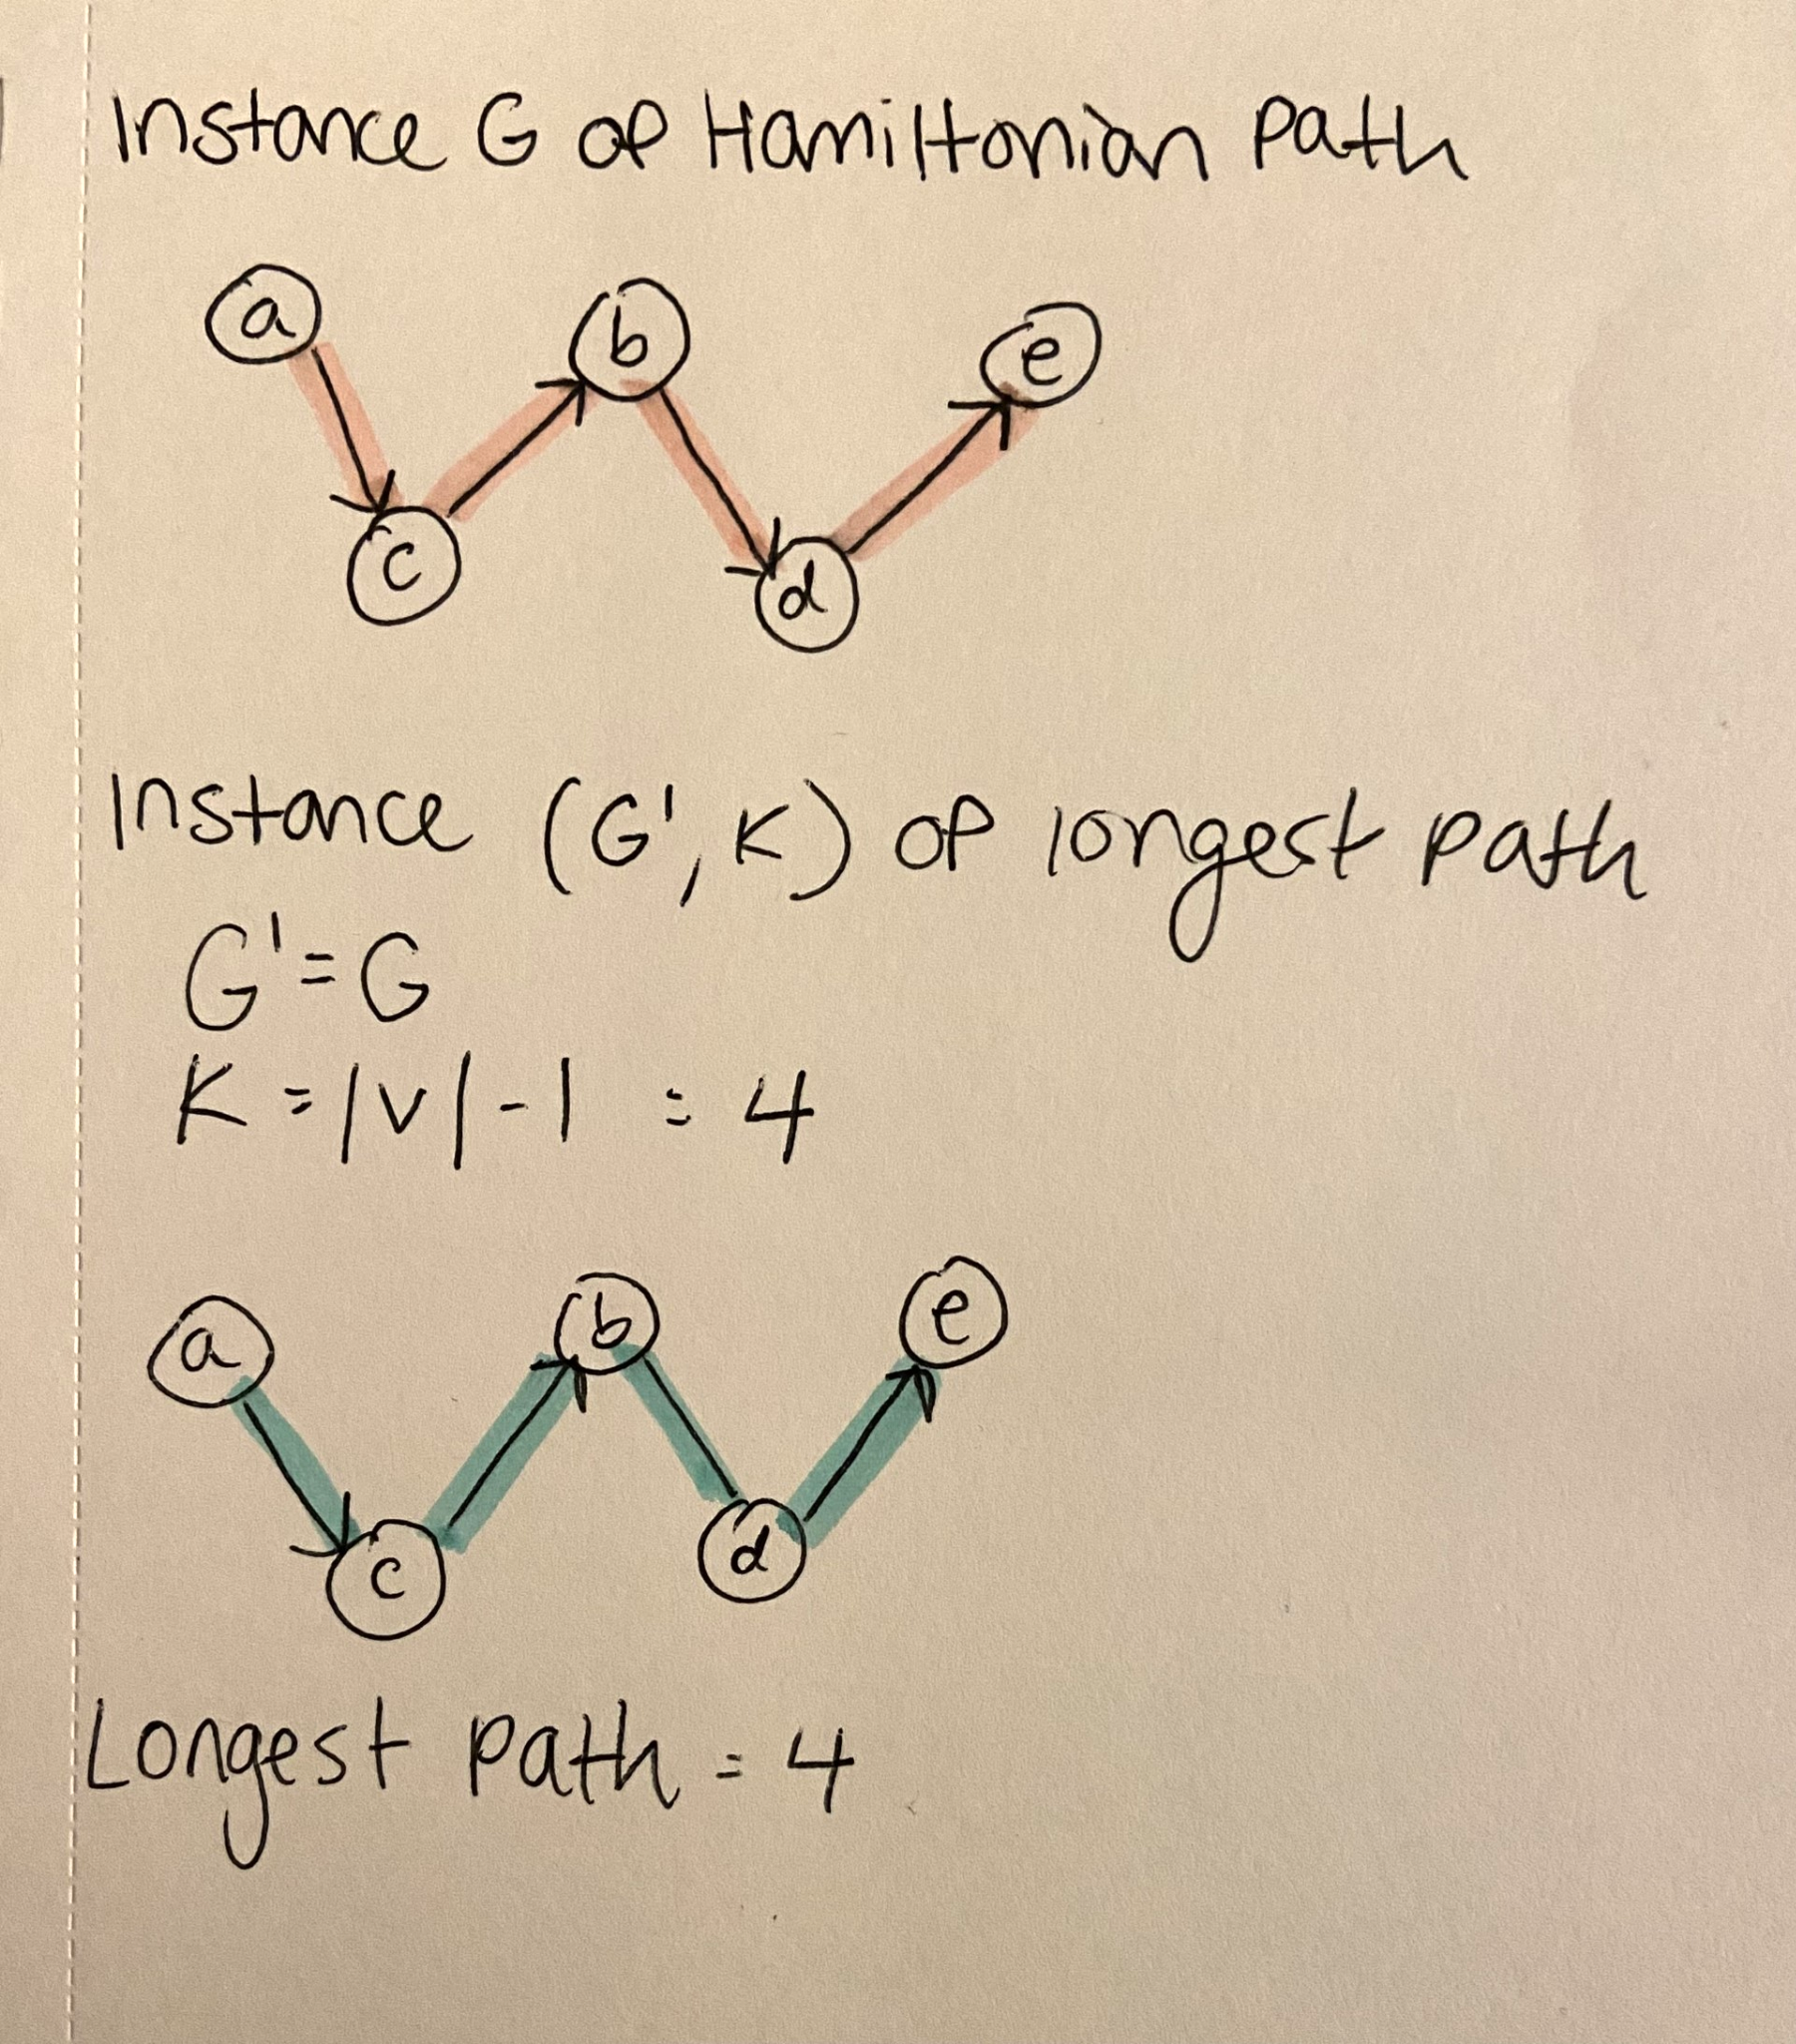 Instance G of Hamiltonian Path
a
b
e
c
d
Instance (G', K) of longest path
G' = G
K = |V| - 1 = 4
a
b
e
c
d
Longest path = 4